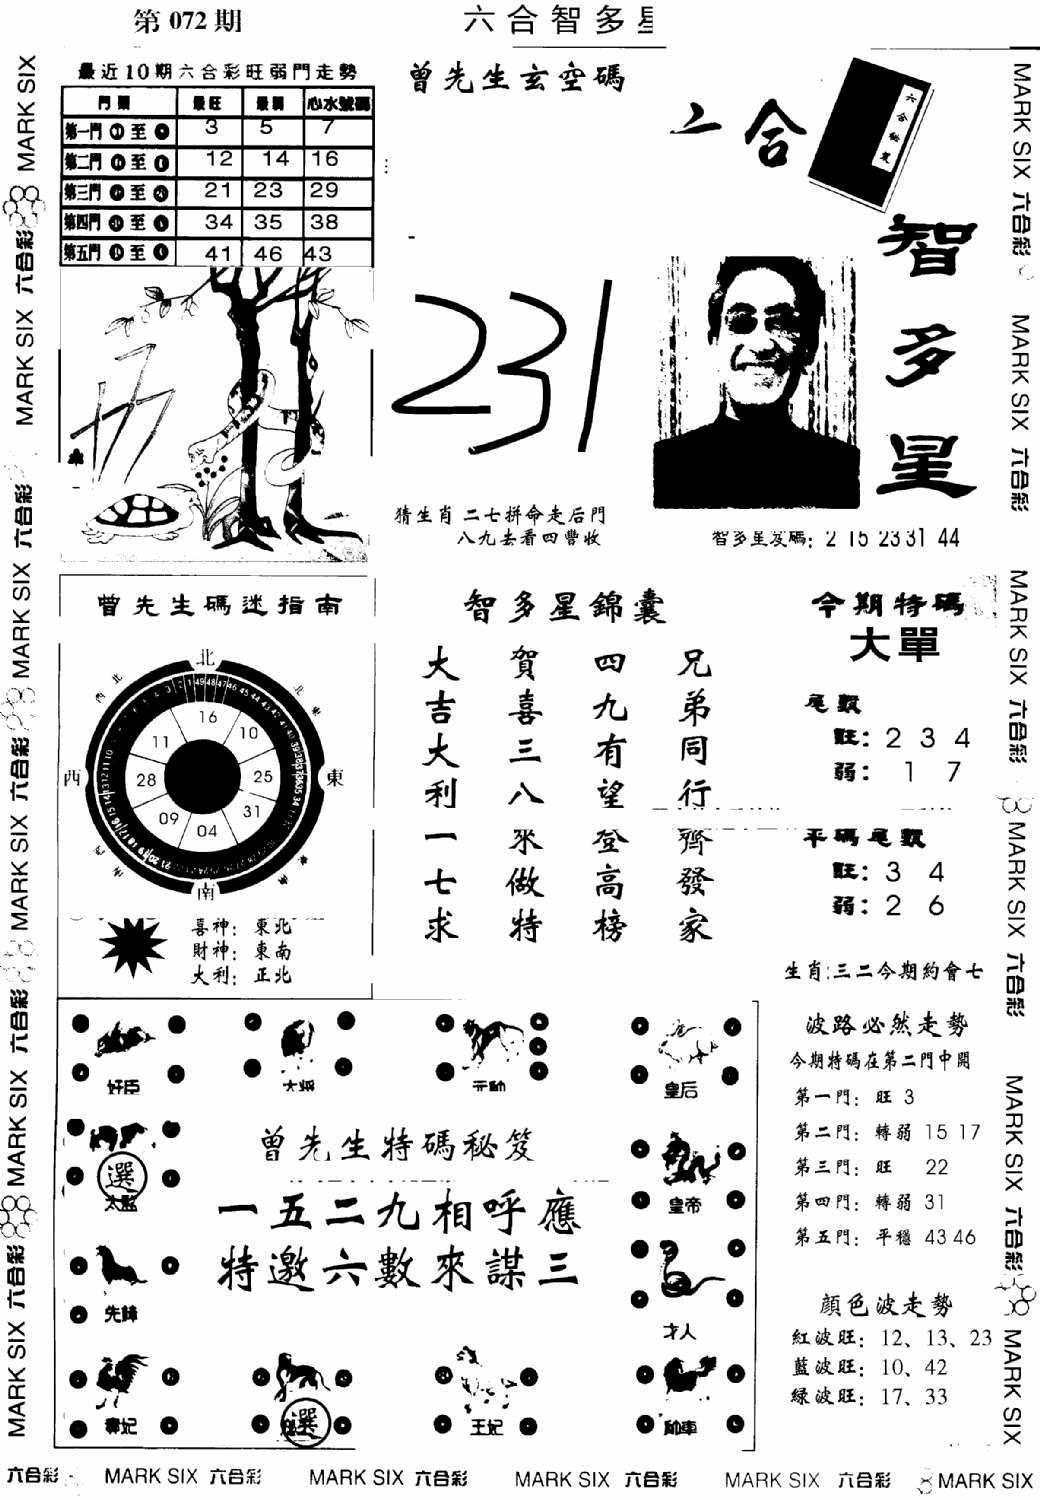 第 072 期
六合智多星
最近10期六合彩旺弱門走勢
門類 最旺 最弱 心水號碼
第一門 至 3 5 7
第二門 至 12 14 16
第三門 至 21 23 29
第四門 至 34 35 38
第五門 至 41 46 43
曾先生玄空碼
231
猜生肖 二七拼命走后門
八九去看四豐收
六合
智多星
智多星发碼：2 15 23 31 44
曾先生碼迷指南
北
西北
東北
16
11
10
西
28
25
東
09
31
04
南
喜神：東北
財神：東南
大利：正北
智多星錦囊
兄弟同行齊發家
四九有望登高榜
賀喜三八來做特
大吉大利一七求
今期特碼
大單
尾數
旺：2 3 4
弱：1 7
平碼尾數
旺：3 4
弱：2 6
生肖:三二今期約會七
波路必然走勢
今期特碼在第二門中開
第一門：旺 3
第二門：轉弱 15 17
第三門：旺 22
第四門：轉弱 31
第五門：平穩 43 46
顏色波走勢
紅波旺：12、13、23
藍波旺：10、42
綠波旺：17、33
奸臣
大將
元帥
皇后
曾先生特碼秘笈
選
太監
皇帝
一五二九相呼應
特邀六數來謀三
先鋒
才人
選
王妃
MARK SIX 六合彩 MARK SIX 六合彩 MARK SIX 六合彩 MARK SIX 六合彩 MARK SIX 六合彩 MARK SIX
MARK SIX 六合彩 MARK SIX 六合彩 MARK SIX 六合彩 MARK SIX 六合彩 MARK SIX 六合彩 MARK SIX
六合彩 MARK SIX 六合彩 MARK SIX 六合彩 MARK SIX 六合彩 MARK SIX 六合彩 MARK SIX